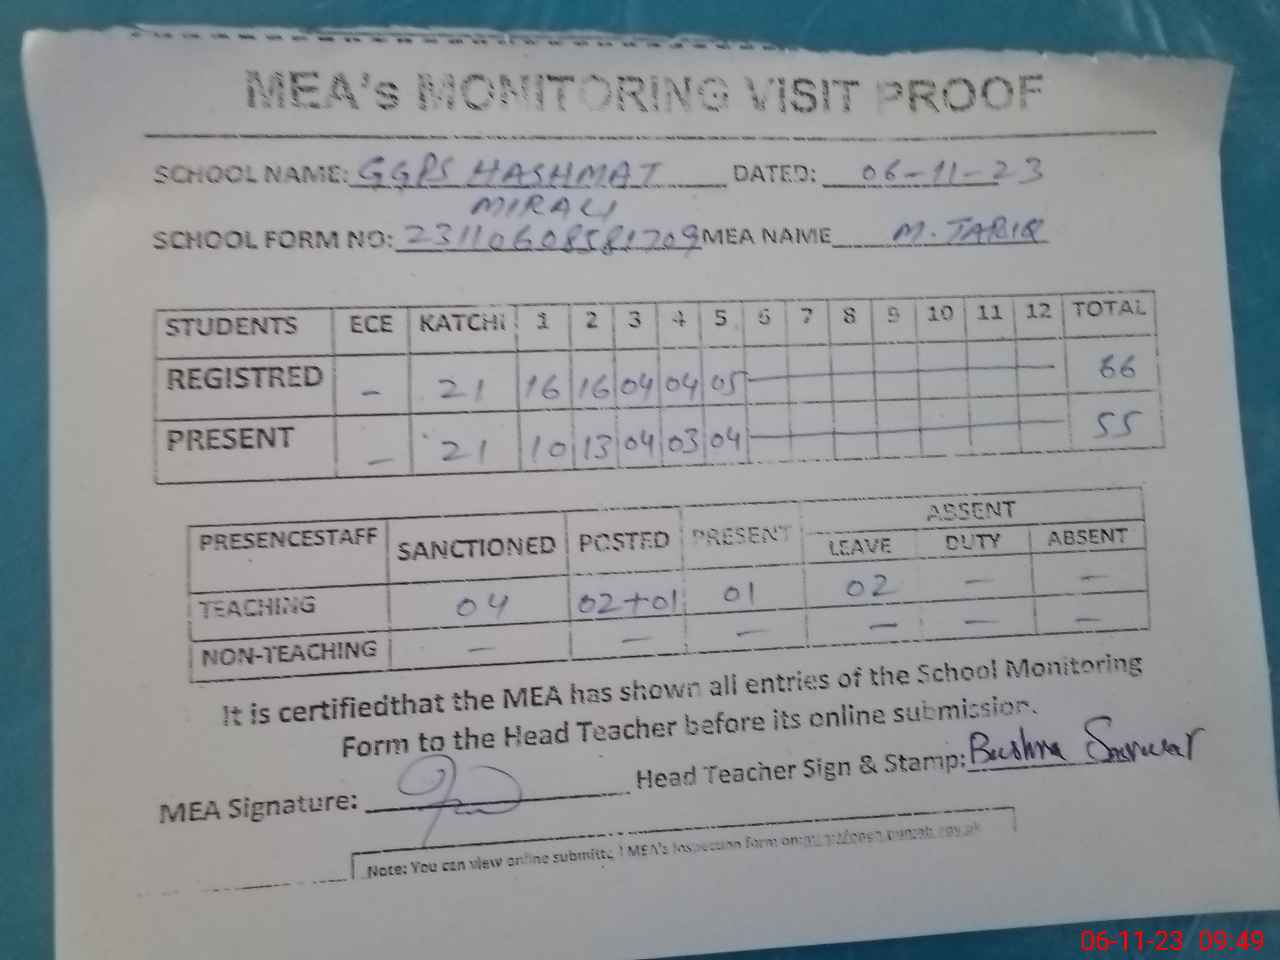 MEA's MONITORING VISIT PROOF
SCHOOL NAME: GGPS HASHMAT DATED: 06-11-23
MIRALI
SCHOOL FORM NO: 23110608581709 MEA NAME M. TARIQ
STUDENTS ECE KATCHI 1 2 3 4 5 6 7 8 9 10 11 12 TOTAL
REGISTRED - 21 16 16 04 04 05 66
PRESENT - 21 10 13 04 03 04 55
ABSENT
PRESENCESTAFF SANCTIONED POSTED PRESENT LEAVE DUTY ABSENT
TEACHING 04 02+01 01 02 - -
NON-TEACHING - - - - - -
It is certifiedthat the MEA has shown all entries of the School Monitoring
Form to the Head Teacher before its online submission.
MEA Signature: Head Teacher Sign & Stamp: Bushra Sarwar
Note: You can view online submitted MEA's Inspection form on:
06-11-23 09:49